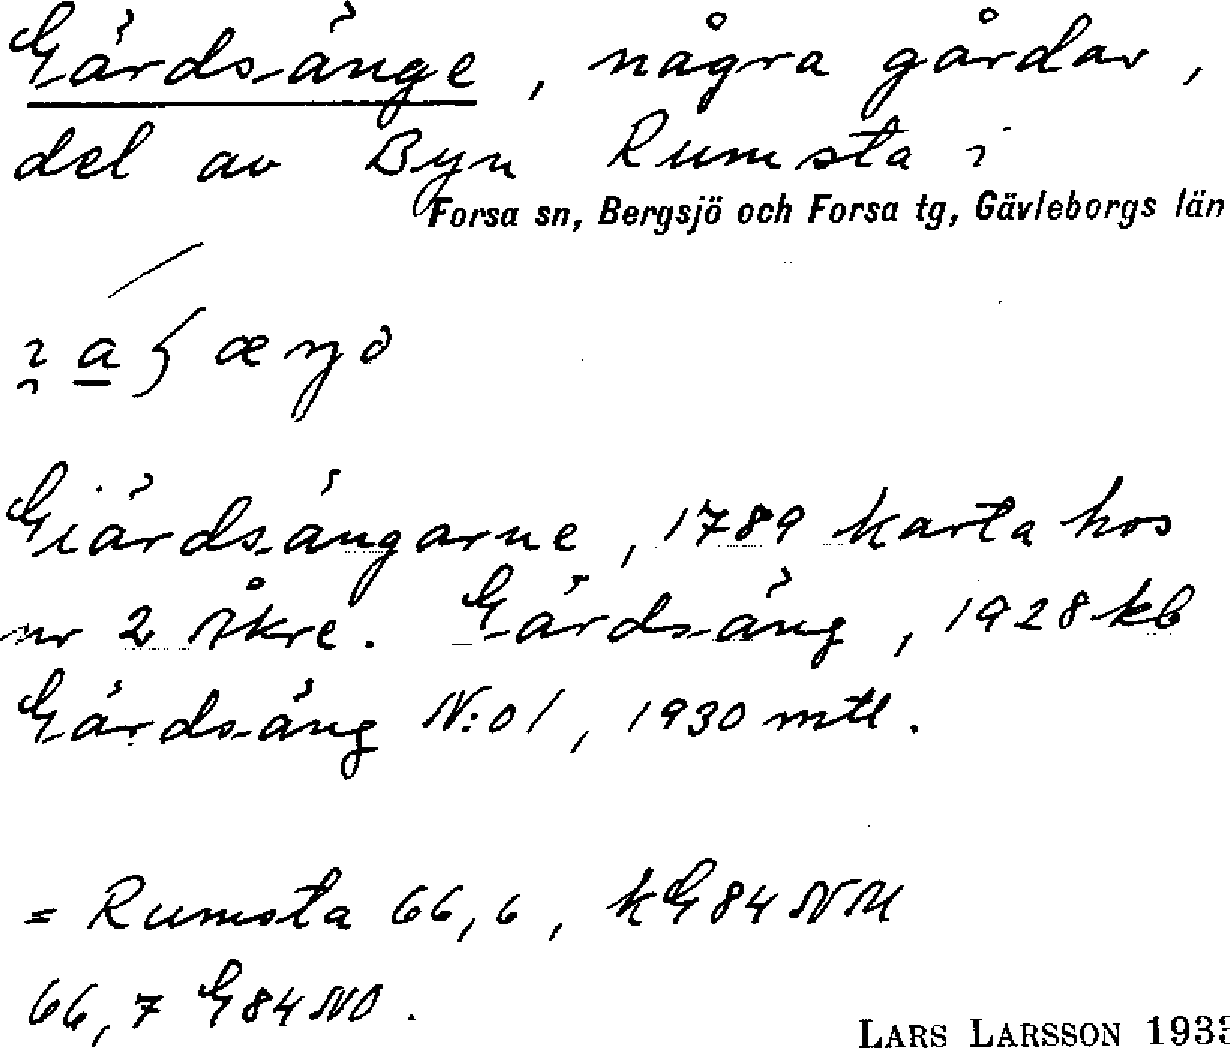 Gärdsänge, några gårdar,
del av Byn Rumsta i
Forsa sn, Bergsjö och Forsa tg, Gävleborgs län
Giärdsängarne, 1789 karta hos
nr 2 Åkre. Gärdsäng, 1928 kb
Gärdsäng N:o 1, 1930 mtl.
= Rumsta 66,6, kG84NM
66,7 G84NO.
LARS LARSSON 193